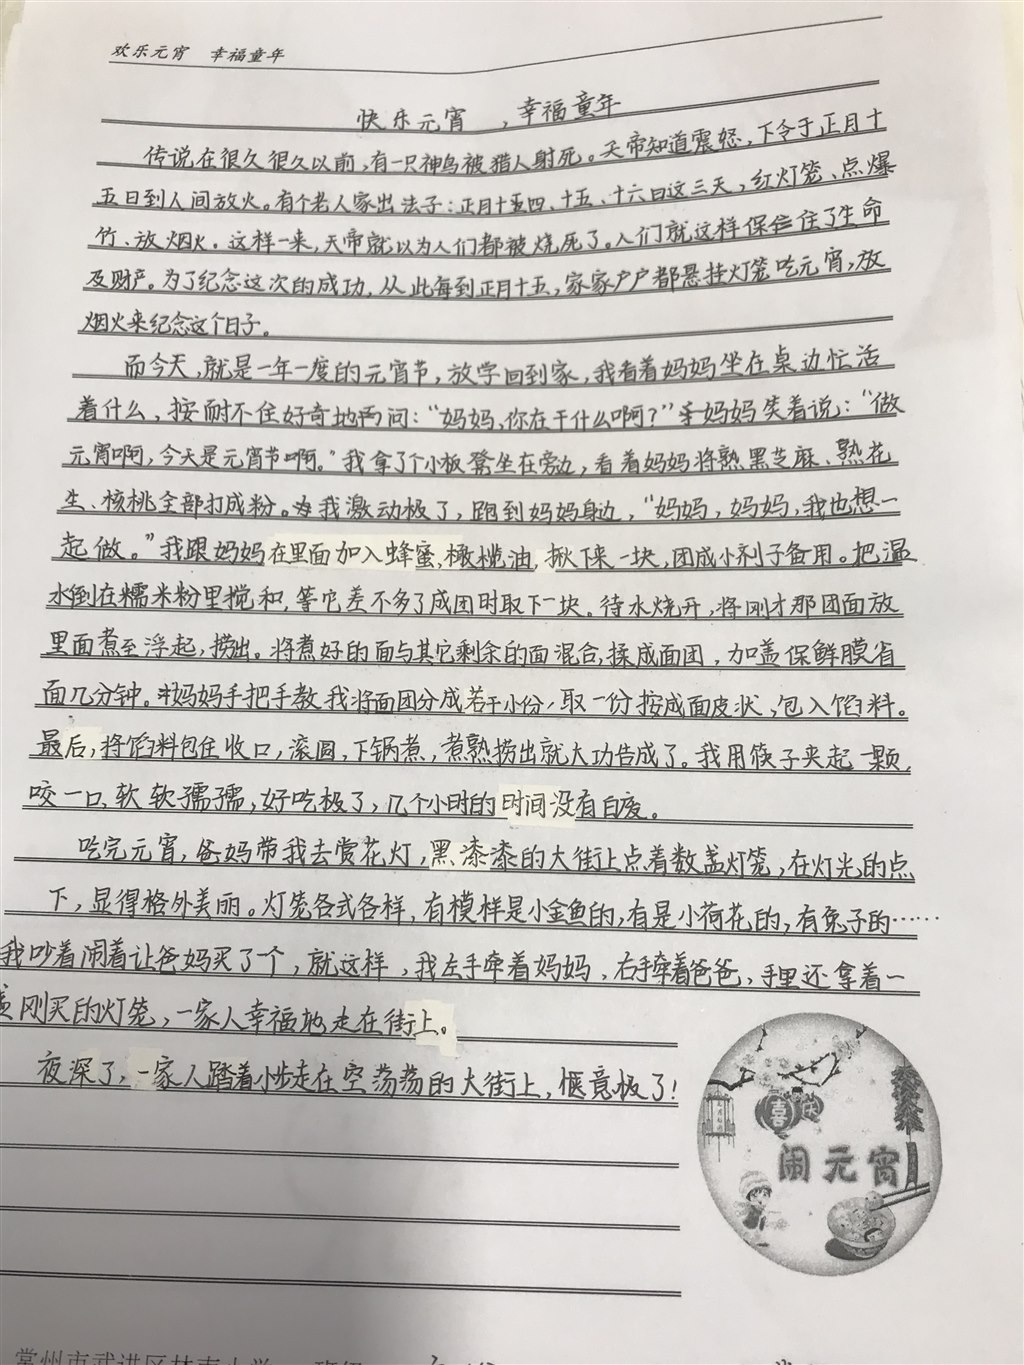 欢乐元宵 幸福童年
快乐元宵,幸福童年
传说在很久很久以前,有一只神鸟被猎人射死。天帝知道震怒,下令于正月十
五日到人间放火。有个老人家出法子:正月十四、十五、十六日这三天,红灯笼、点爆
竹、放烟火。这样一来,天帝就以为人们都被烧死了。人们就这样保住了生命
及财产。为了纪念这次的成功,从此每到正月十五,家家户户都悬挂灯笼吃元宵,放
烟火来纪念这个日子。
而今天,就是一年一度的元宵节,放学回到家,我看着妈妈坐在桌边忙活
着什么,按耐不住好奇地问:“妈妈,你在干什么啊?”妈妈笑着说:“做
元宵啊,今天是元宵节啊。”我拿了个小板凳坐在旁边,看着妈妈将熟黑芝麻、熟花
生、核桃全部打成粉。我激动极了,跑到妈妈身边,“妈妈,妈妈,我也想一
起做。”我跟妈妈在里面加入蜂蜜,橄榄油,揪下来一块,团成小剂子备用。把温
水倒在糯米粉里搅和,等它差不多了成团时取下一块。待水烧开,将刚才那团面放
里面煮至浮起,捞出。将煮好的面与其它剩余的面混合,揉成面团,加盖保鲜膜省
面几分钟。妈妈手把手教我将面团分成若干小份,取一份按成面皮状,包入馅料。
最后,将馅料包住收口,滚圆,下锅煮,煮熟捞出就大功告成了。我用筷子夹起一颗,
咬一口,软软孺孺,好吃极了,几个小时的时间没有白废。
吃完元宵,爸妈带我去赏花灯,黑漆漆的大街上点着数盏灯笼,在灯光的点
下,显得格外美丽。灯笼各式各样,有模样是小金鱼的,有是小荷花的,有兔子的……
我吵着闹着让爸妈买了个,就这样,我左手牵着妈妈,右手牵着爸爸,手里还拿着一
盏刚买的灯笼,一家人幸福地走在街上。
夜深了,一家人踏着小步走在空荡荡的大街上,惬意极了!
喜庆
闹元宵